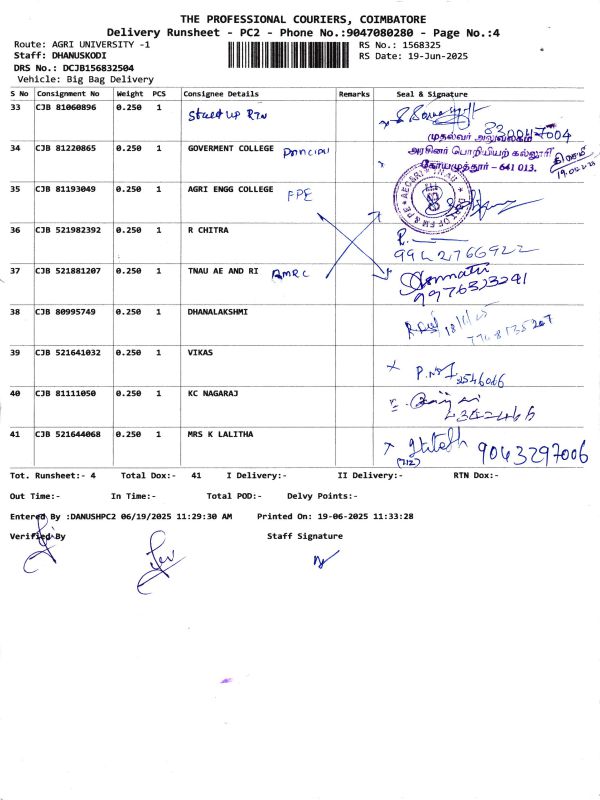 THE PROFESSIONAL COURIERS, COIMBATORE
Delivery Runsheet - PC2 - Phone No.:9047080280 - Page No.:4
Route: AGRI UNIVERSITY -1 RS No.: 1568325
Staff: DHANUSKODI RS Date: 19-Jun-2025
DRS No.: DCJB156832504
Vehicle: Big Bag Delivery
S No Consignment No Weight PCS Consignee Details Remarks Seal & Signature
33 CJB 81060896 0.250 1 Start up RTN
முதல்வர் அலுவலகம்
34 CJB 81220865 0.250 1 GOVERMENT COLLEGE Principal அரசினர் பொறியியற் கல்லூரி
கோயமுத்தூர் - 641 013.
35 CJB 81193049 0.250 1 AGRI ENGG COLLEGE FPE
36 CJB 521982392 0.250 1 R CHITRA R.
9942766922
37 CJB 521881207 0.250 1 TNAU AE AND RI AMRC
9976323241
38 CJB 80995749 0.250 1 DHANALAKSHMI
39 CJB 521641032 0.250 1 VIKAS
40 CJB 81111050 0.250 1 KC NAGARAJ
41 CJB 521644068 0.250 1 MRS K LALITHA 9043297006
(712)
Tot. Runsheet:- 4 Total Dox:- 41 I Delivery:- II Delivery:- RTN Dox:-
Out Time:- In Time:- Total POD:- Delvy Points:-
Entered By :DANUSHPC2 06/19/2025 11:29:30 AM Printed On: 19-06-2025 11:33:28
Verified By Staff Signature